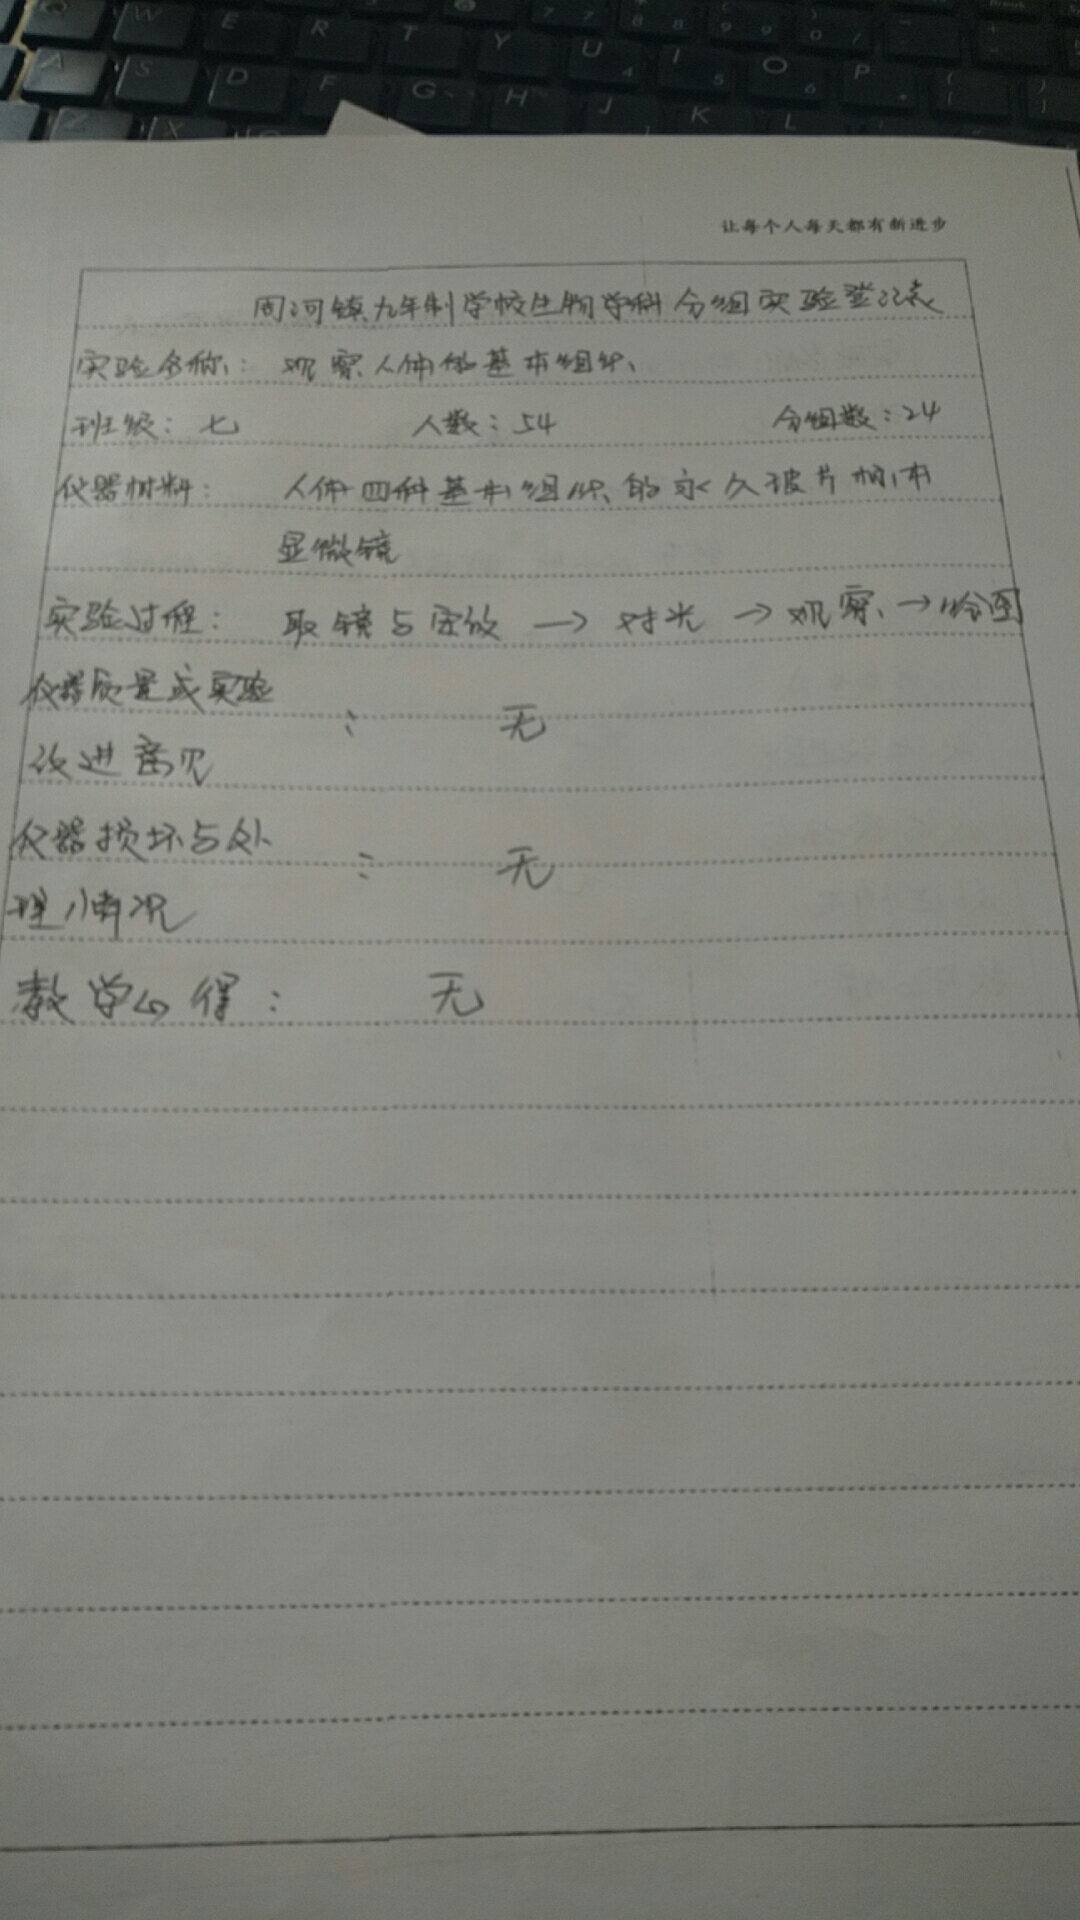 Q W E R T Y U I O P
A S D F G H J K L
Z X
让每个人每天都有新进步
周河镇九年制学校生物学科分组实验登记表
实验名称：观察人体的基本组织
班级：七 人数：54 分组数：24
仪器材料：人体四种基本组织的永久玻片标本
显微镜
实验过程：取镜与安放 → 对光 → 观察 → 绘图
仪器质量或实验
改进意见 ： 无
仪器损坏与处
理情况 ： 无
教学心得： 无